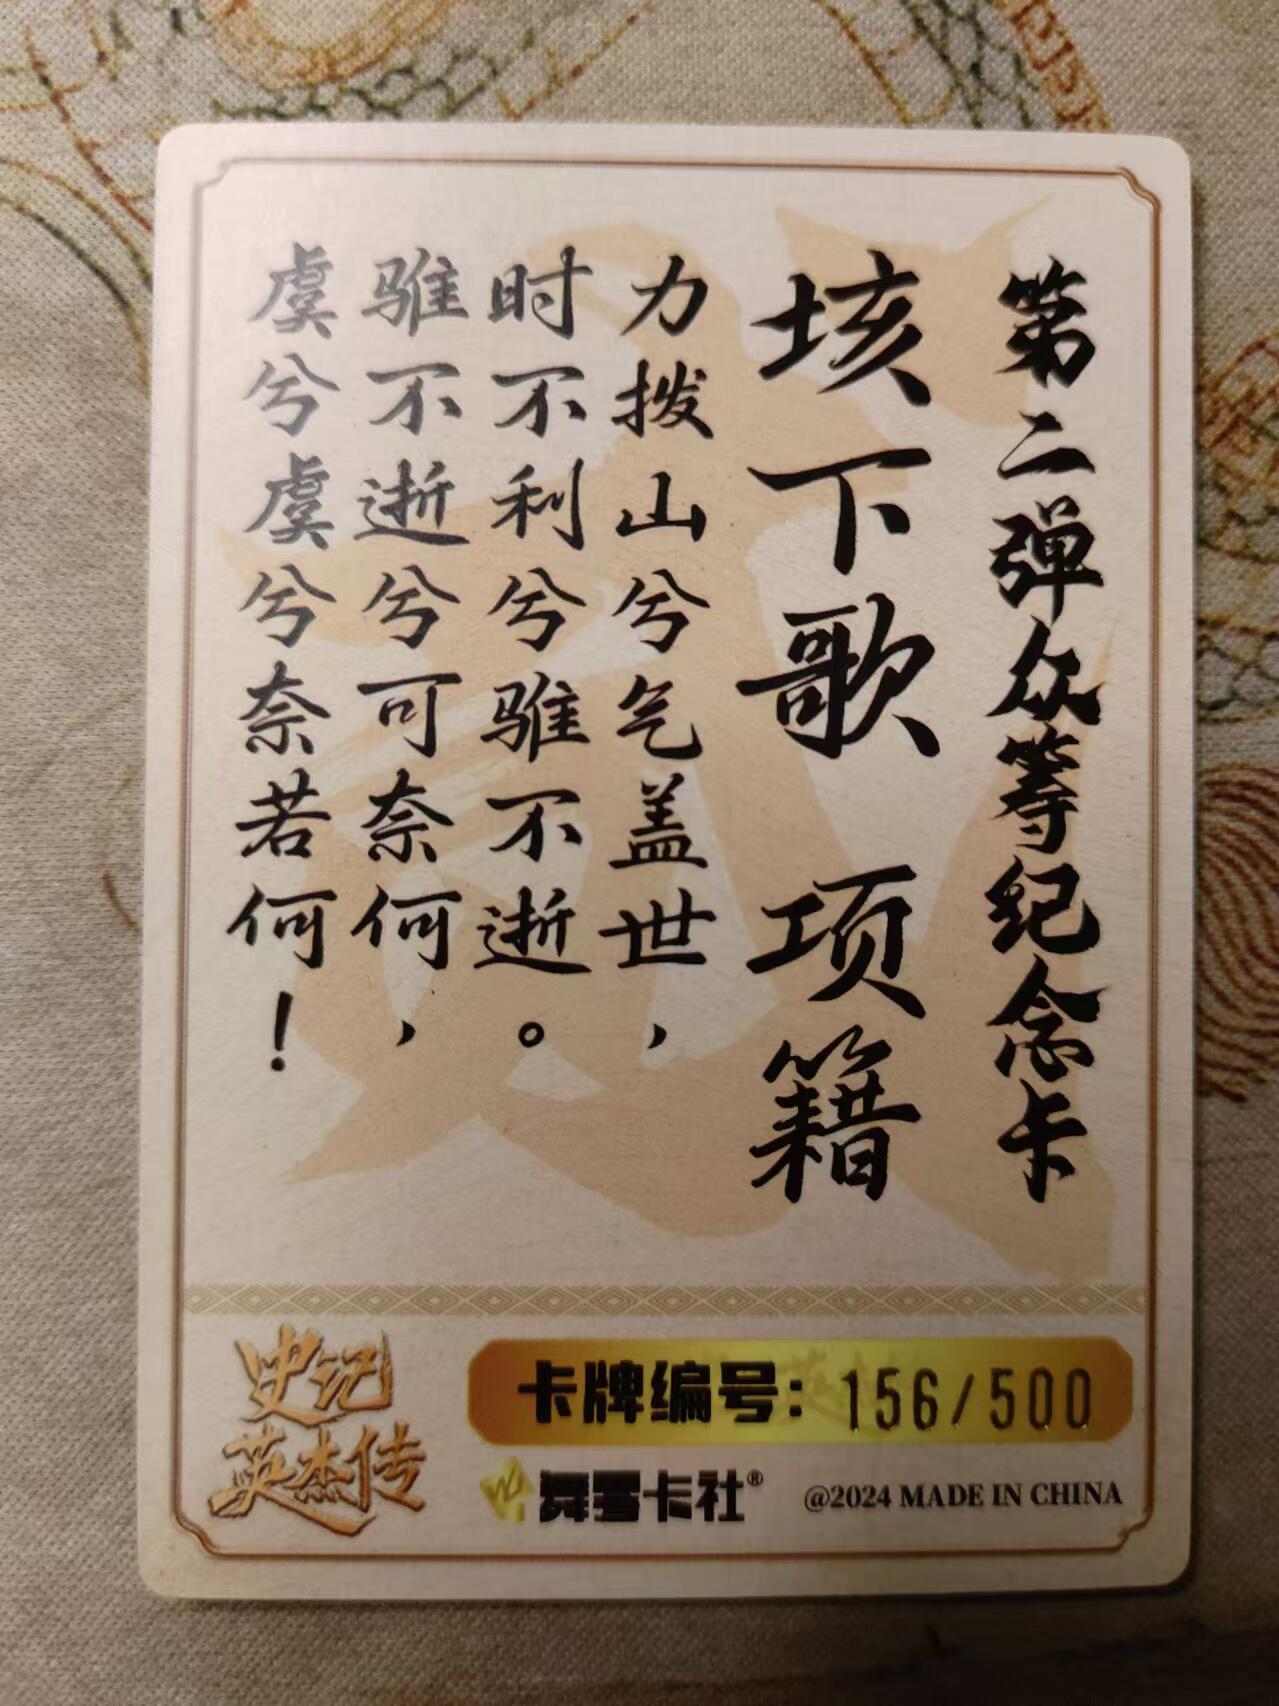 第二弹众筹纪念卡
垓下歌 项籍
力拨山兮气盖世，
时不利兮骓不逝。
骓不逝兮可奈何，
虞兮虞兮奈若何！
史记
英杰传
卡牌编号：156/500
舞雩卡社®
@2024 MADE IN CHINA